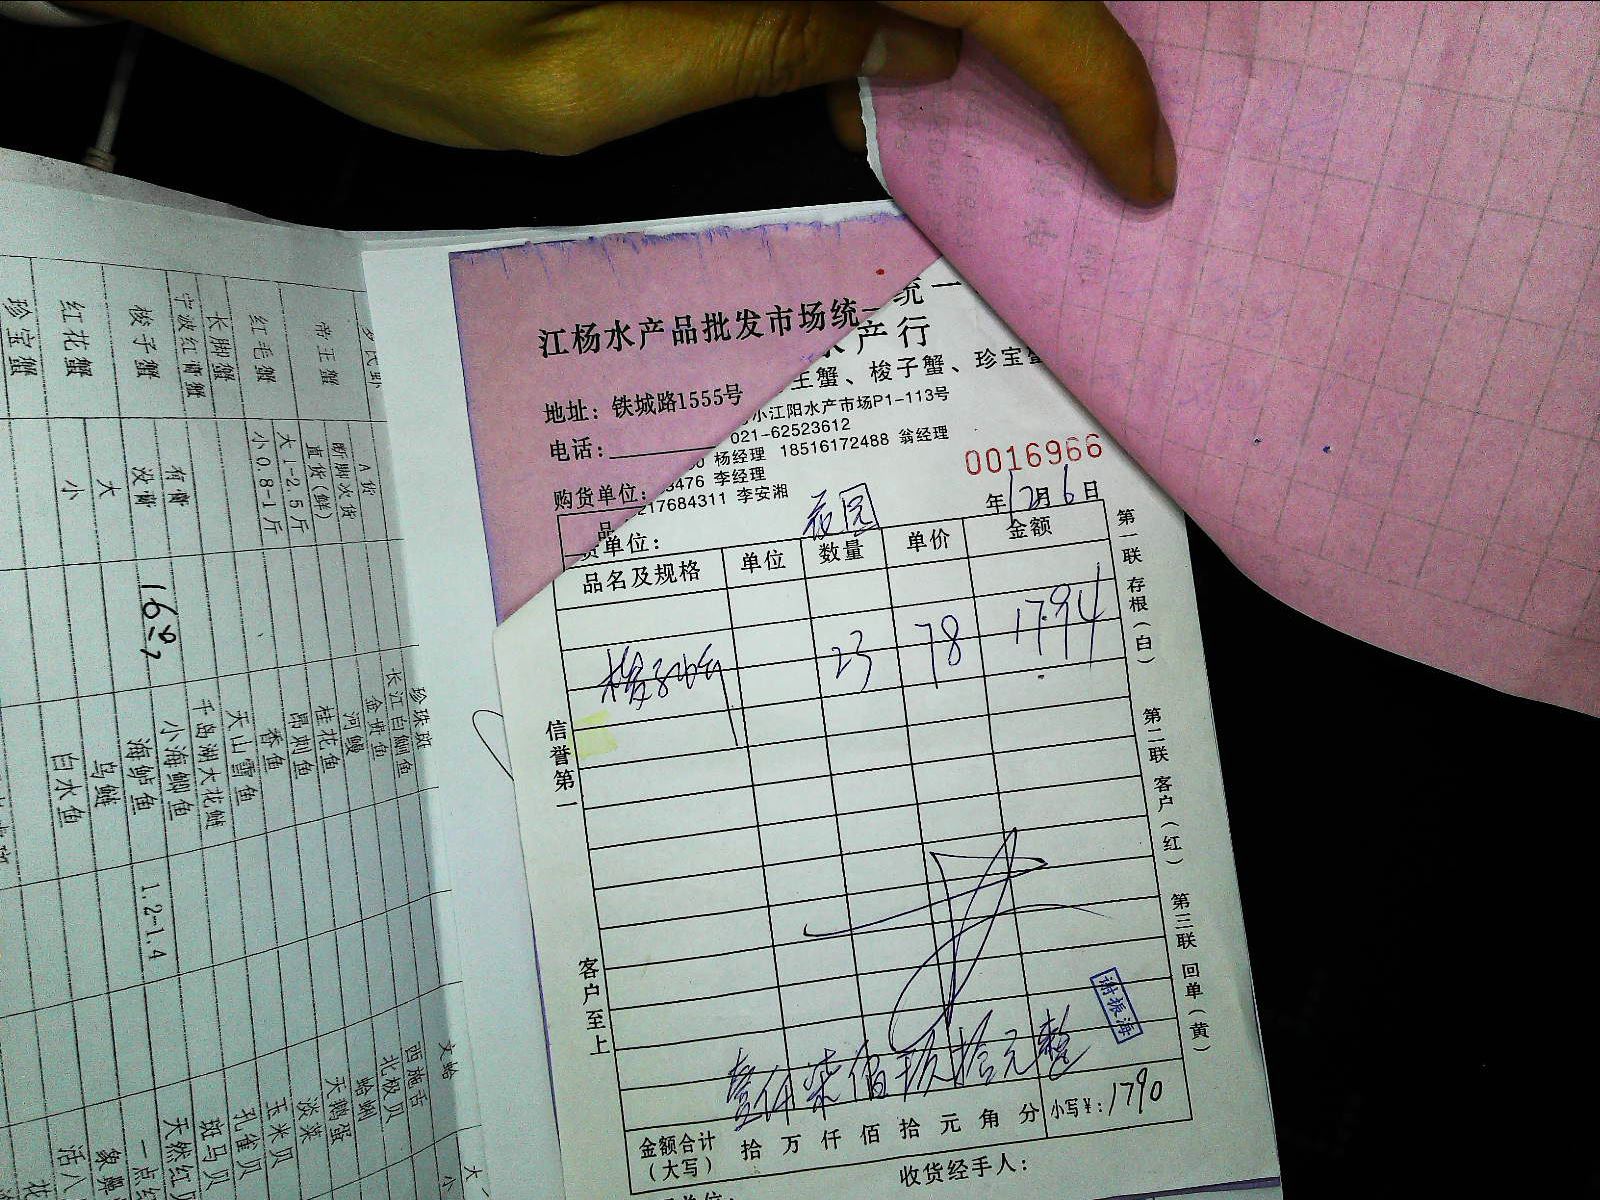 江杨水产品批发市场统一
统一
产行
地址：铁城路1555号
王蟹、梭子蟹、珍宝蟹
江阳水产市场P1-113号
电话：
021-62523612
杨经理 18516172488 翁经理
3476 李经理
购货单位：
217684311 李安湘
0016966
年12月6日
品
货单位：
品名及规格 单位 数量 单价 金额
梭子蟹 23 78 1794
信誉第一
客户至上
第一联 存根（白）
第二联 客户（红）
第三联 回单（黄）
谢振海
壹仟柒佰玖拾元整
金额合计（大写） 拾 万 仟 佰 拾 元 角 分 小写￥：1790
收货经手人：
帝王蟹
红毛蟹
长脚蟹
宁波红膏蟹
梭子蟹
红花蟹
珍宝蟹
A货
断脚次货
直货（鲜）
大1-2.5斤
小0.8-1斤
有膏
没膏
大
小
珍珠斑
长江白鮰鱼
金贵鱼
河鳗
桂花鱼
昂刺鱼
香鱼
天山雪鱼
千岛湖大花鲢
小海鲫鱼
海鲈鱼
乌鲢
白水鱼
1.2-1.4
文蛤
西施舌
北极贝
蛤蜊
天鹅蛋
淡菜
玉米贝
孔雀贝
斑马贝
天然红贝